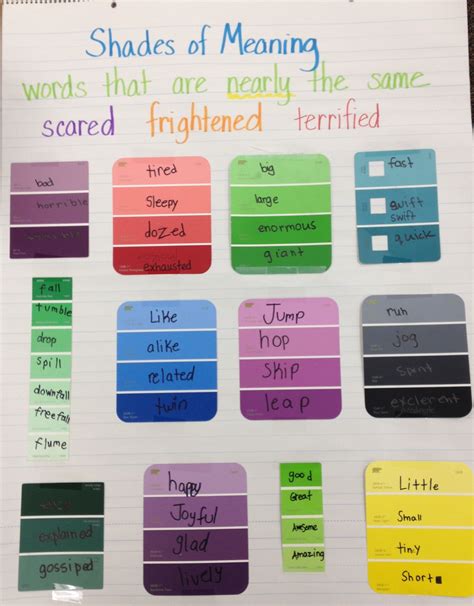 Shades of Meaning
words that are nearly the same
scared frightened terrified
bad
horrible
tired
Sleepy
dozed
exhausted
big
large
enormous
giant
fast
swift
swift
quick
fall
tumble
drop
spill
downfall
freefall
flume
Like
alike
related
twin
Jump
hop
skip
leap
run
jog
explained
gossiped
happy
Joyful
glad
lively
good
Great
Awesome
Amazing
Little
Small
tiny
Short